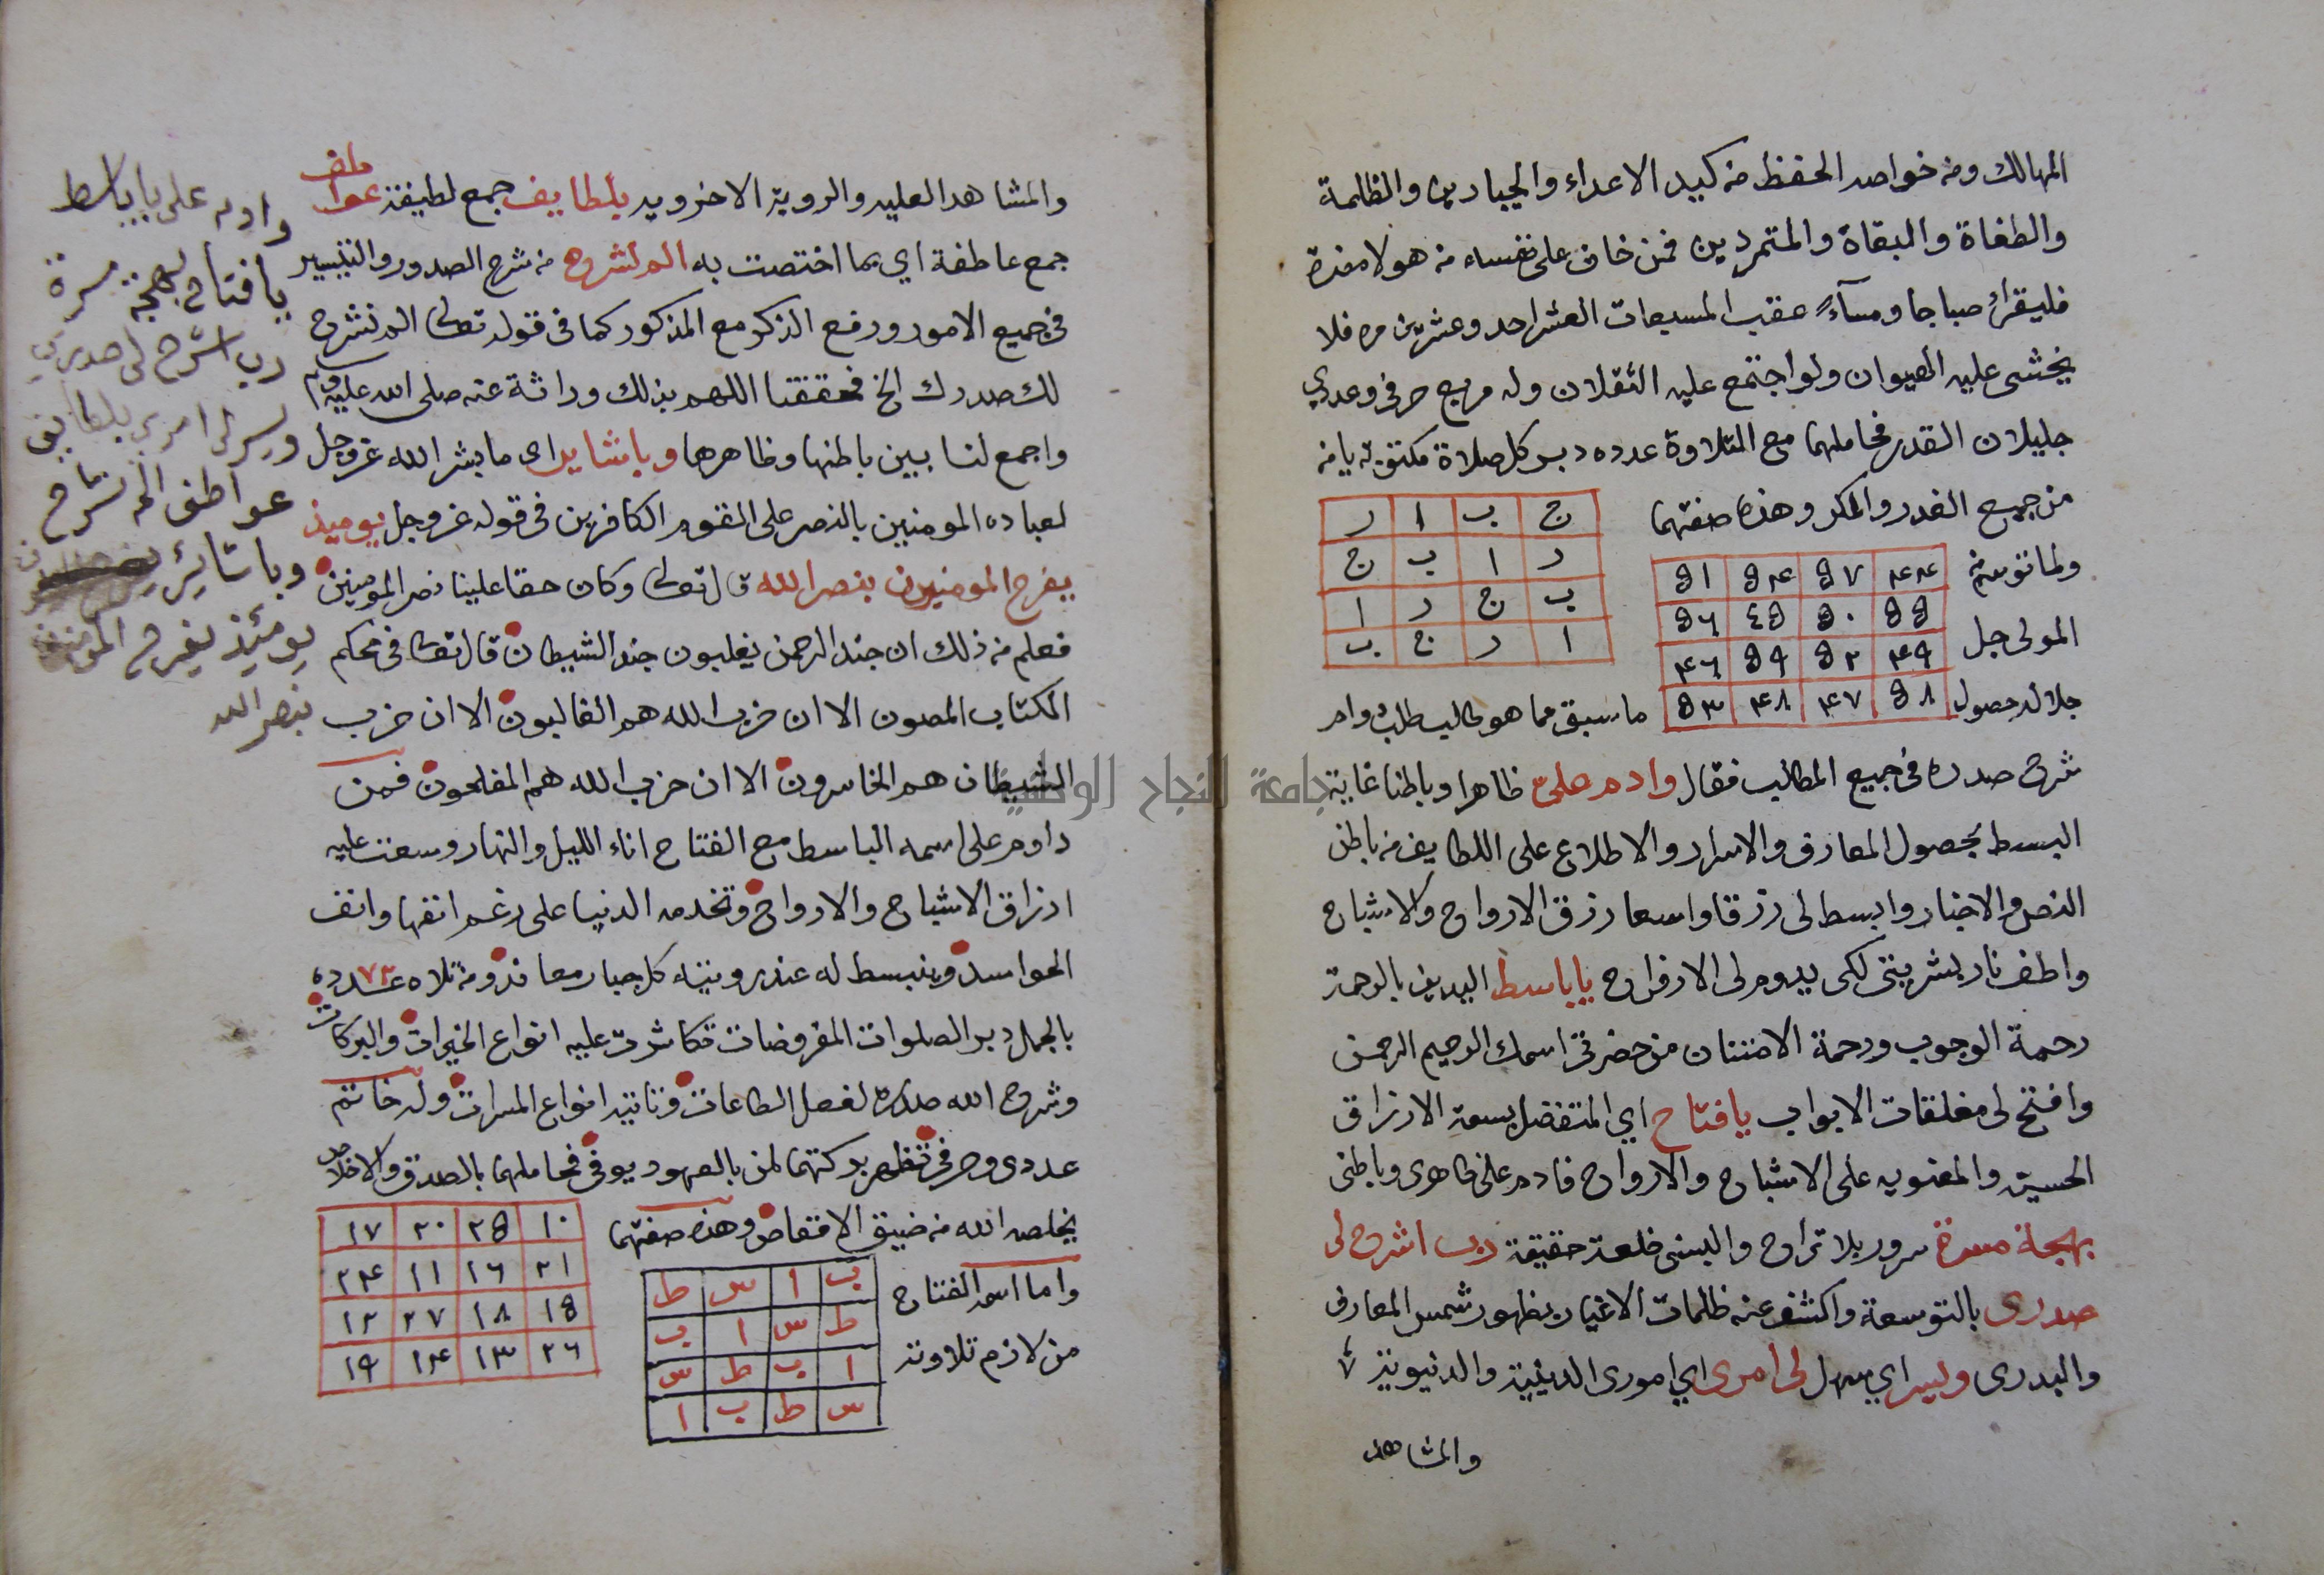 المهالك ومن خواصه الحفظ من كيد الاعداء والجبارين والظلمة
والطغاة والبقاة والمتمردين فمن خاف على نفسه من هولا
فليقرأ صباحا ومسآءً عقب المسبعات العشر احد وعشرين مره فلا
يخشى عليه الهوان ولو اجتمع عليه الثقلان وله مربع حرفي وعددي
جليلان القدر فحاملهما مع التلاوة عدده دبر كل صلاة مكتوبه يامن
من جميع الغدر والمكر وهذه صفتهما
ج ب ا ر
ر ا ب ج
ب ج ر ا
ا ر ج ب
۴۴ ۵۷ ۵۴ ۵۱
۵۵ ۵۰ ٤۵ ۵٦
۴۹ ۵۲ ۵۹ ۴٦
۵۸ ۴۷ ۴۸ ۵۳
ولما توسم
المولى جل
جلاله حصول
ما سبق مما هو طالب طلب دوام
شرح صدره فى جميع المطالب فقال وادم علىّ ظاهرا وباطنا غاية
البسط بحصول المعارف والاسرار والاطلاع على اللطايف من باطن
النص والاخبار وابسط لى رزقا واسعا رزق الارواح والاشباح
واطف نار بشريتى لكى يدوم لى الافراح يا باسط اليدين بالرحمة
رحمة الوجوب ورحمة الامتنان من حضرتى اسمك الرحيم الرحمن
وافتح لى مغلقات الابواب يا فتاح اي المتفضل بسعة الارزاق
الحسيه والمعنويه على الاشباح والارواح فادم على ظاهرى وباطنى
بهجة مسرة سرور بلا تراح والبسنى خلعة حقيقة رب اشرح لى
صدرى بالتوسعة واكشف عنه ظلمات الاغيار بظهور شمس المعارف
والبدرى ويسر اي سهل لى امرى اي امورى الدينية والدنيوية
والمشاهد
والمشاهد العليه والروية الاخرويه بلطايف جمع لطيفة عواطف
جمع عاطفة اي بما اختصت به الم نشرح من شرح الصدور والتيسير
فى جميع الامور ورفع الذكر مع المذكور كما فى قوله تعالى الم نشرح
لك صدرك الخ فحققنا اللهم بذلك وراثة عنه صلى الله عليه وسلم
واجمع لنا بين باطنها وظاهرها وبأشاير اى ما بشر الله عز وجل
لعباده المومنين بالنصر على القوم الكافرين فى قوله عز وجل يوميذ
يفرح المومنون بنصر الله قال تعالى وكان حقا علينا نصر المومنين
فعلم من ذلك ان جند الرحمن يغلبون جند الشيطان قال تعالى فى محكم
الكتاب المصون الا ان حزب الله هم الغالبون الا ان حزب
الشيطان هم الخاسرون الا ان حزب الله هم المفلحون فمن
داوم على اسمه الباسط مع الفتاح اناء الليل والنهار وسعت عليه
ارزاق الاشباح والارواح وتخدمه الدنيا على رغم انفها وانف
الحواسد وينبسط له عند رويته كل جبار معاند ومن تلاه عدده ۷۲
بالجمل دبر الصلوات المفروضات تكاثرت عليه انواع الخيرات والبركات
وشرح الله صدره لفعل الطاعات وتاتيه انواع المسرات وله خاتم
عددى وحرفى تظهر بركتهما لمن بالعهود يوفى فحاملهما بالصدق والاخلاص
يخلصه الله من ضيق الاقفاص وهذه صفتهما
۱۰ ۲۵ ۲۰ ۱۷
۲۱ ۱٦ ۱۱ ۲۴
۱۵ ۱۸ ۲۷ ۱۲
۲٦ ۱۳ ۱۴ ۱۹
ب ا س ط
ط س ا ب
ا ب ط س
س ط ب ا
واما اسمه الفتاح
من لازم تلاوته
وادم على يا باسط
يا فتاح بهجة مسرة
رب اشرح لى صدري
ويسر لى امري بلطايف
عواطف الم نشرح
وباشاير
يومئذ يفرح المومنون
بنصر الله